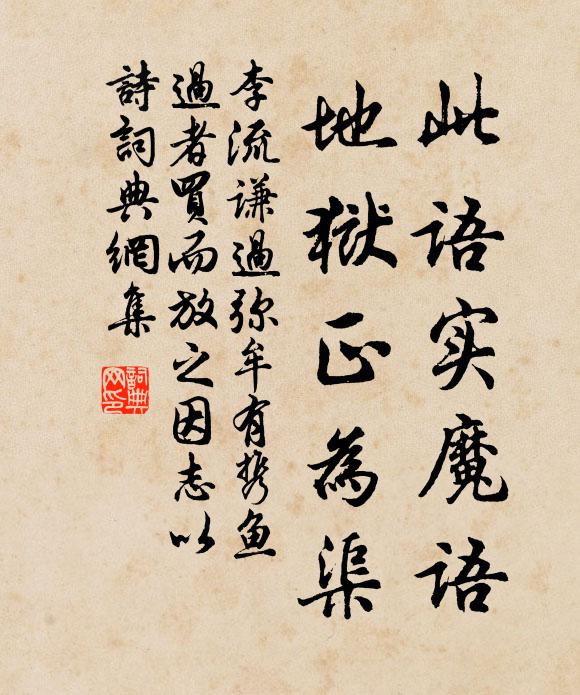 此语实魔语
地狱正為渠
李流谦過弥牟有携鱼
過者買而放之因志以
詩詞典網集
詞典網印